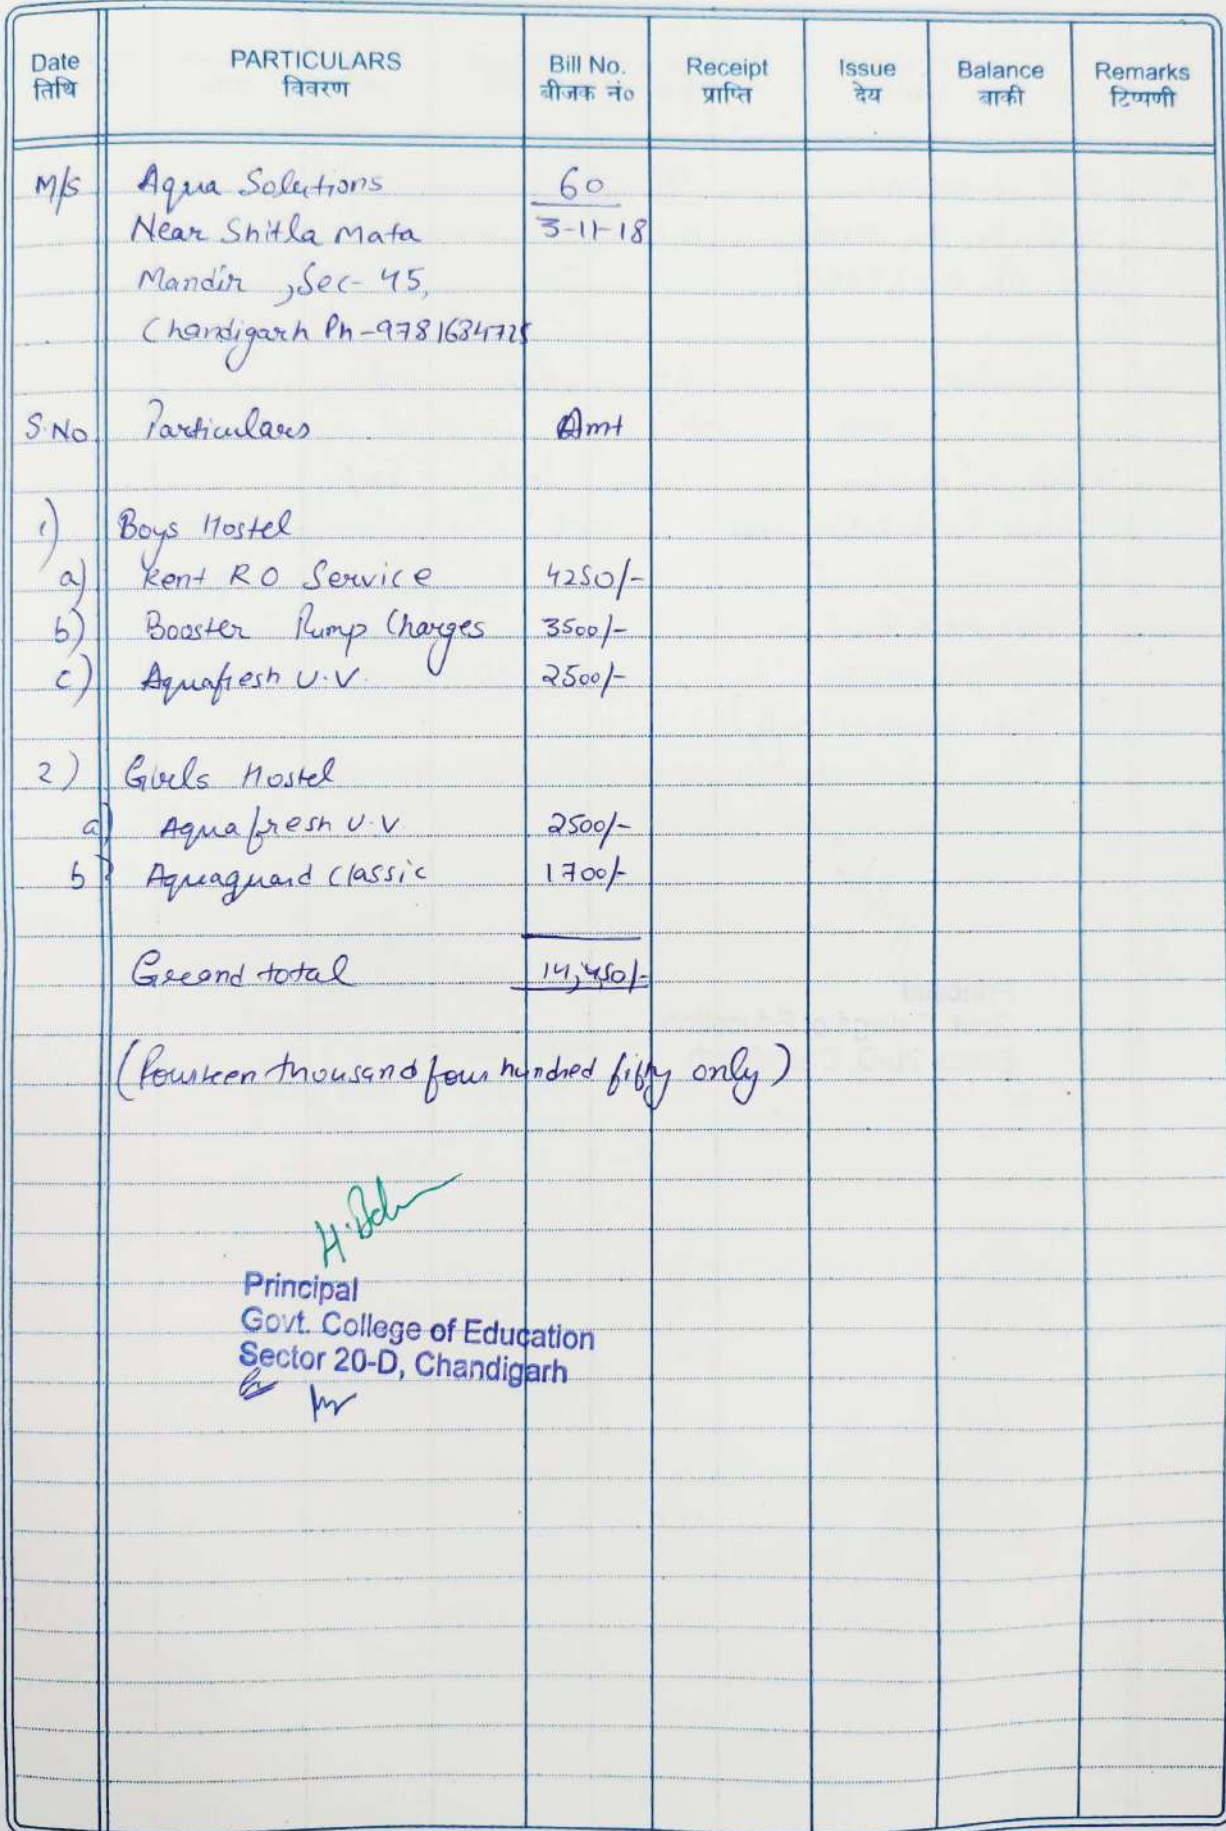 Date PARTICULARS Bill No. Receipt Issue Balance Remarks
तिथि विवरण बीजक नं० प्राप्ति देय बाकी टिप्पणी
M/S Aqua Solutions 60
Near Shitla Mata 3-11-18
Mandir, Sec-45,
Chandigarh Ph-9781634725
S.No. Particulars Amt
1) Boys Hostel
a) Kent RO Service 4250/-
b) Booster Pump Charges 3500/-
c) Aquafresh U.V. 2500/-
2) Girls Hostel
a) Aquafresh U.V 2500/-
b) Aquaguard Classic 1700/-
Grand total 14,450/-
(Fourteen thousand four hundred fifty only)
Principal
Govt. College of Education
Sector 20-D, Chandigarh